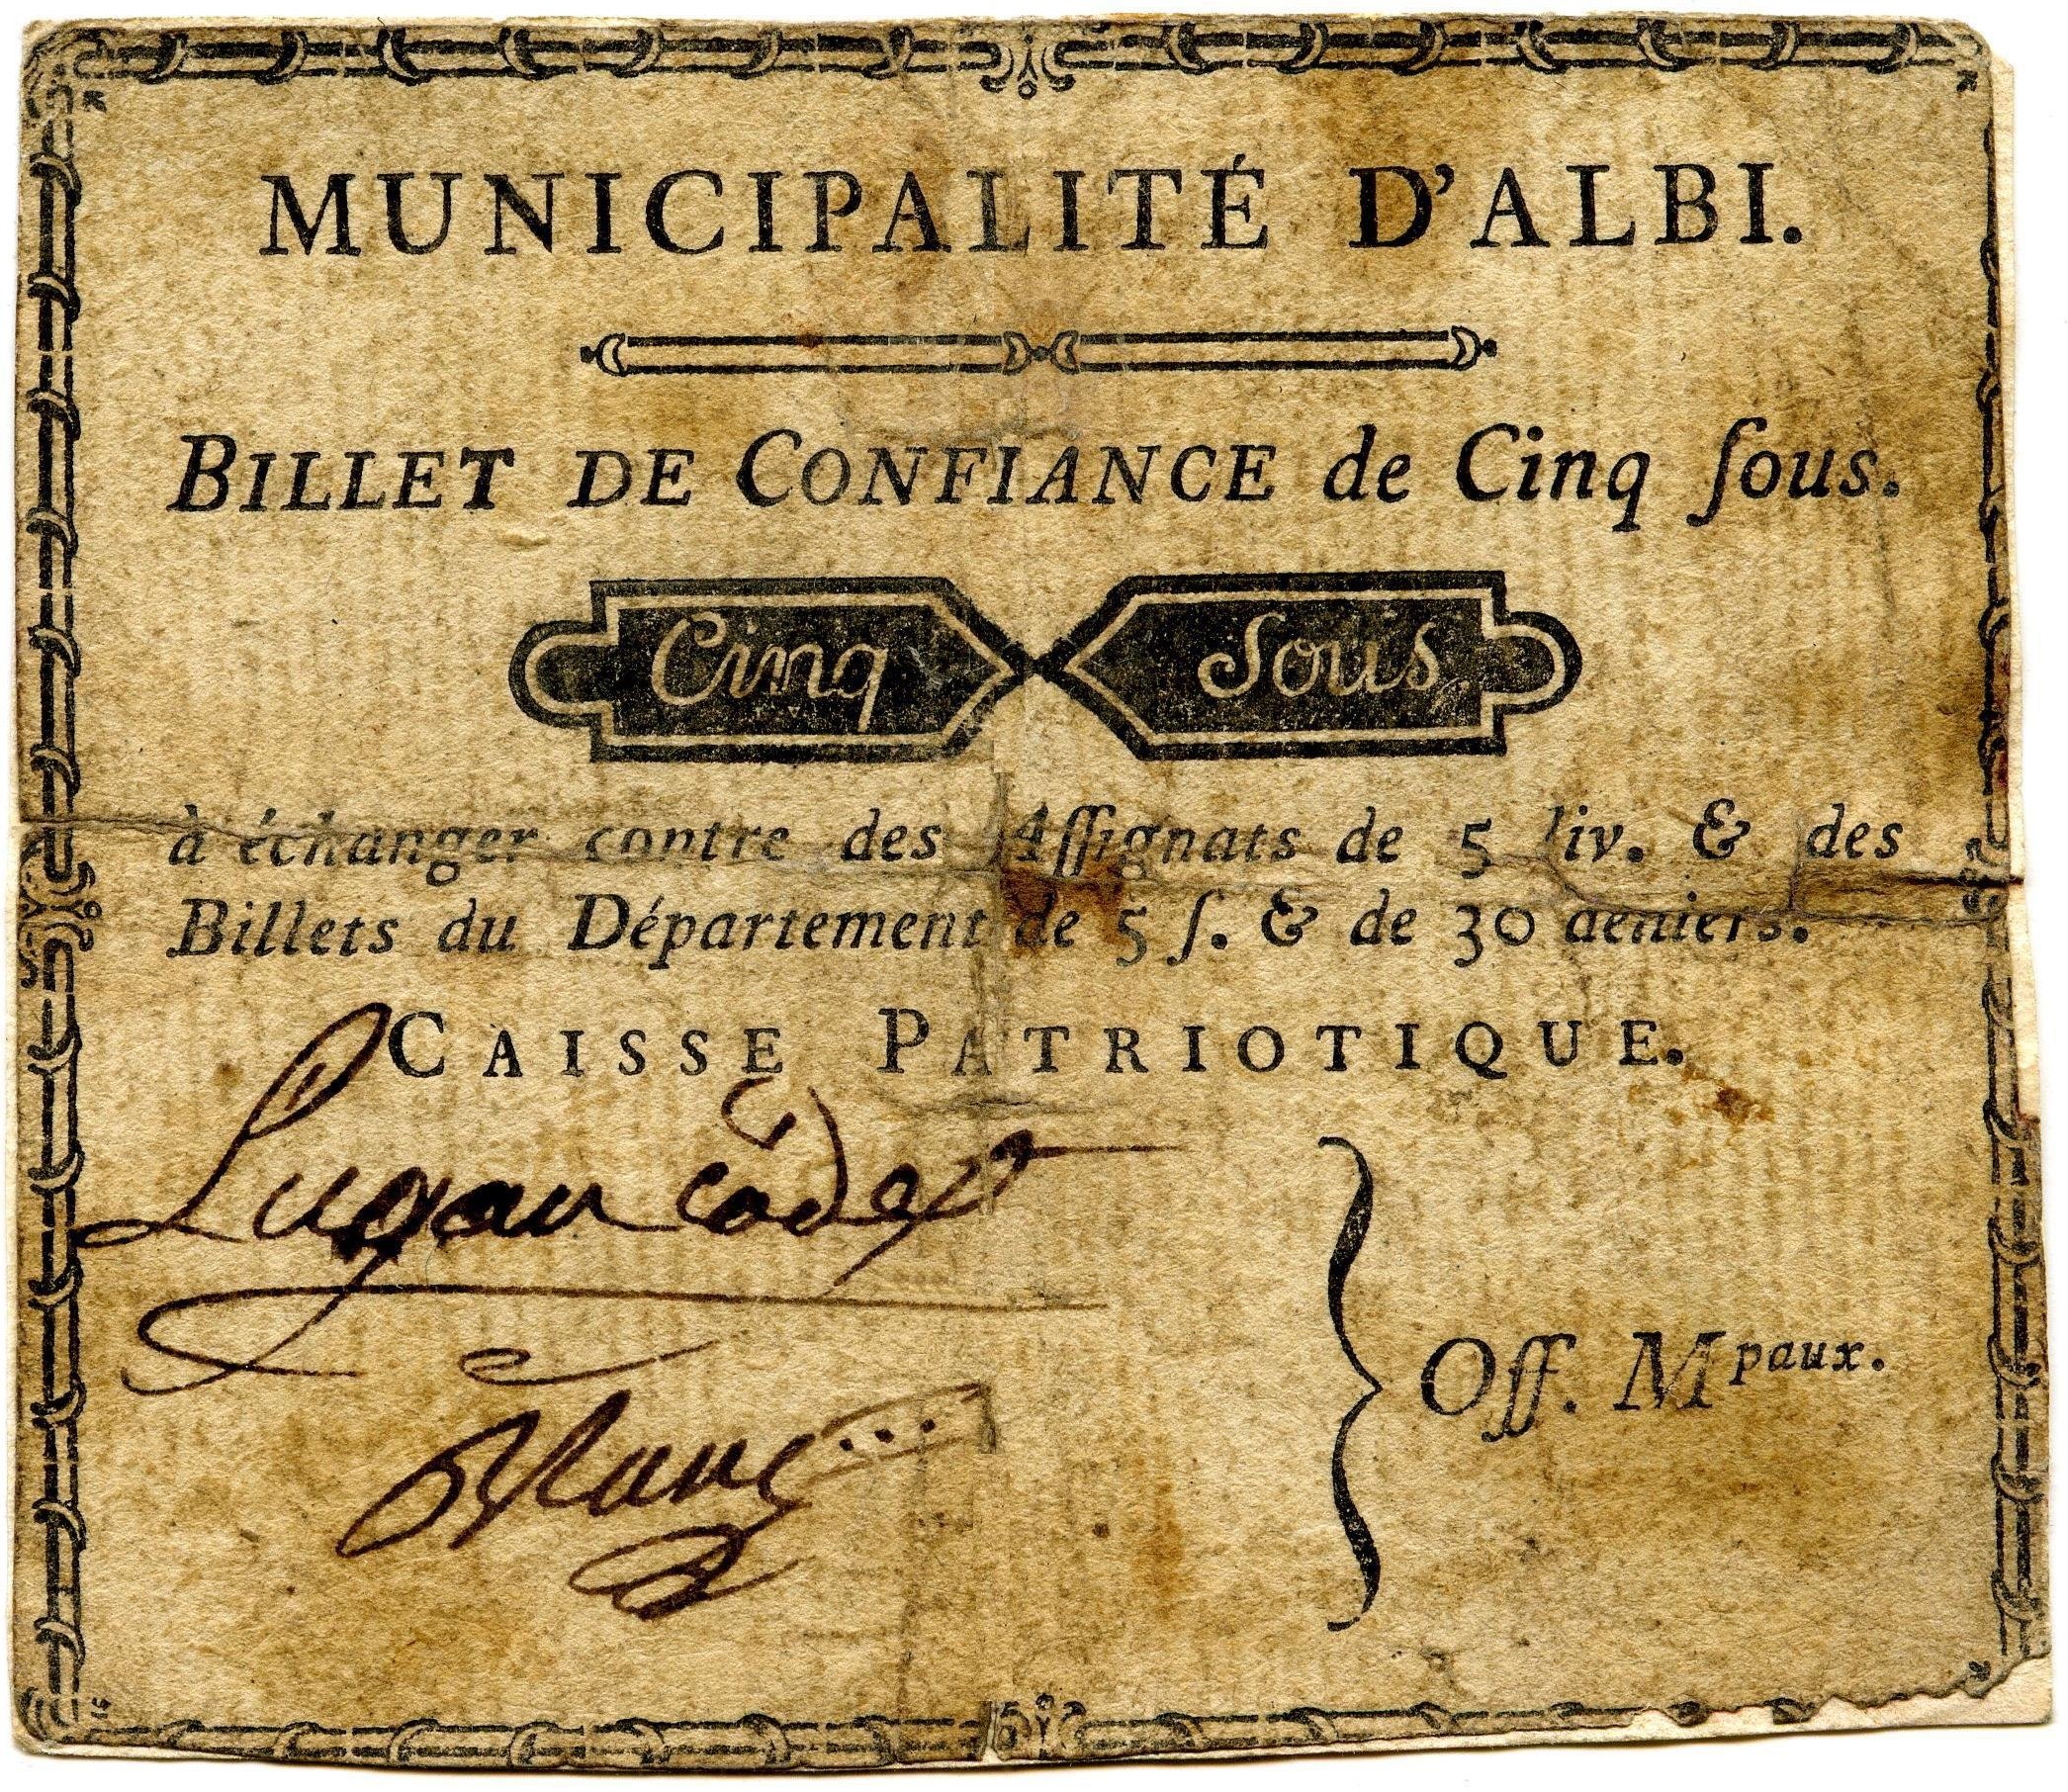 MUNICIPALITÉ D'ALBI.
BILLET DE CONFIANCE de Cinq ſous.
Cinq Sous
à échanger contre des Aſſignats de 5 liv. & des
Billets du Département de 5 ſ. & de 30 deniers.
CAISSE PATRIOTIQUE.
Lugan cadet
Off. Mpaux.